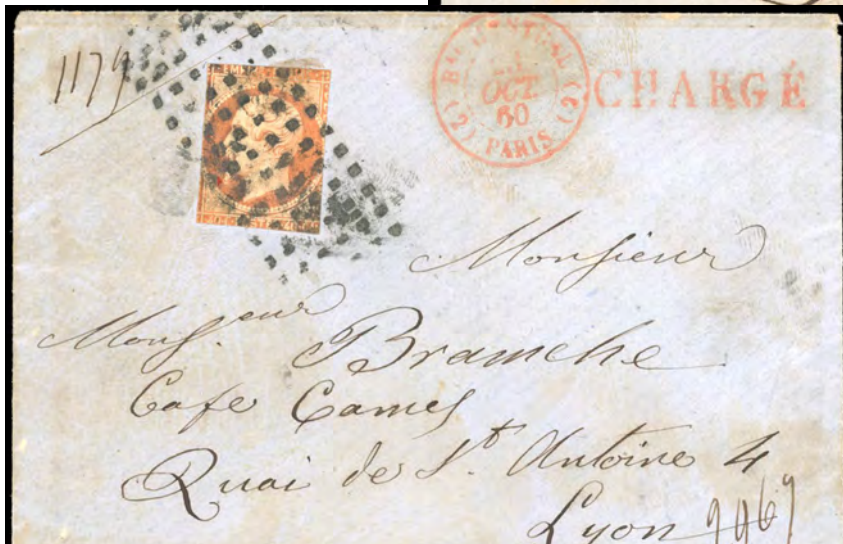 1179
EMP
POSTES
BAU CENTRAL (C)
OCT
60
(2) PARIS
CHARGÉ
Monsieur
Monsieur
Branche
Cafe Camel
Quai de St. Antoine 4
Lyon